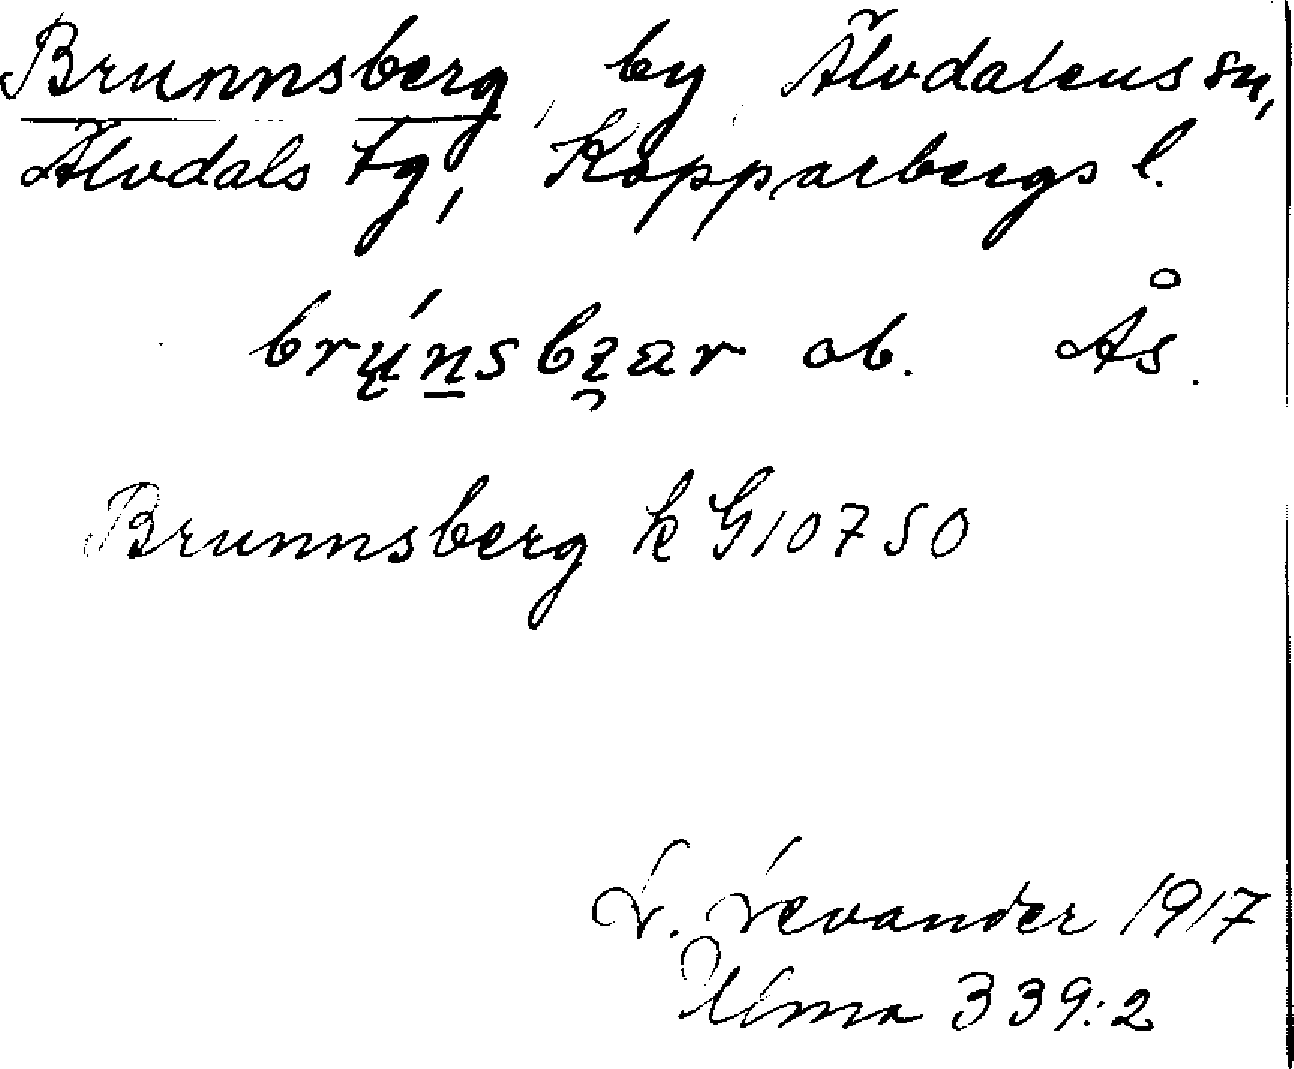 Brunnsberg, by, Älvdalens sn,
Älvdals tg, Kopparbergs l.
ob. Ås.
Brunnsberg k G10750
L. Levander 1917
Ulma 339:2